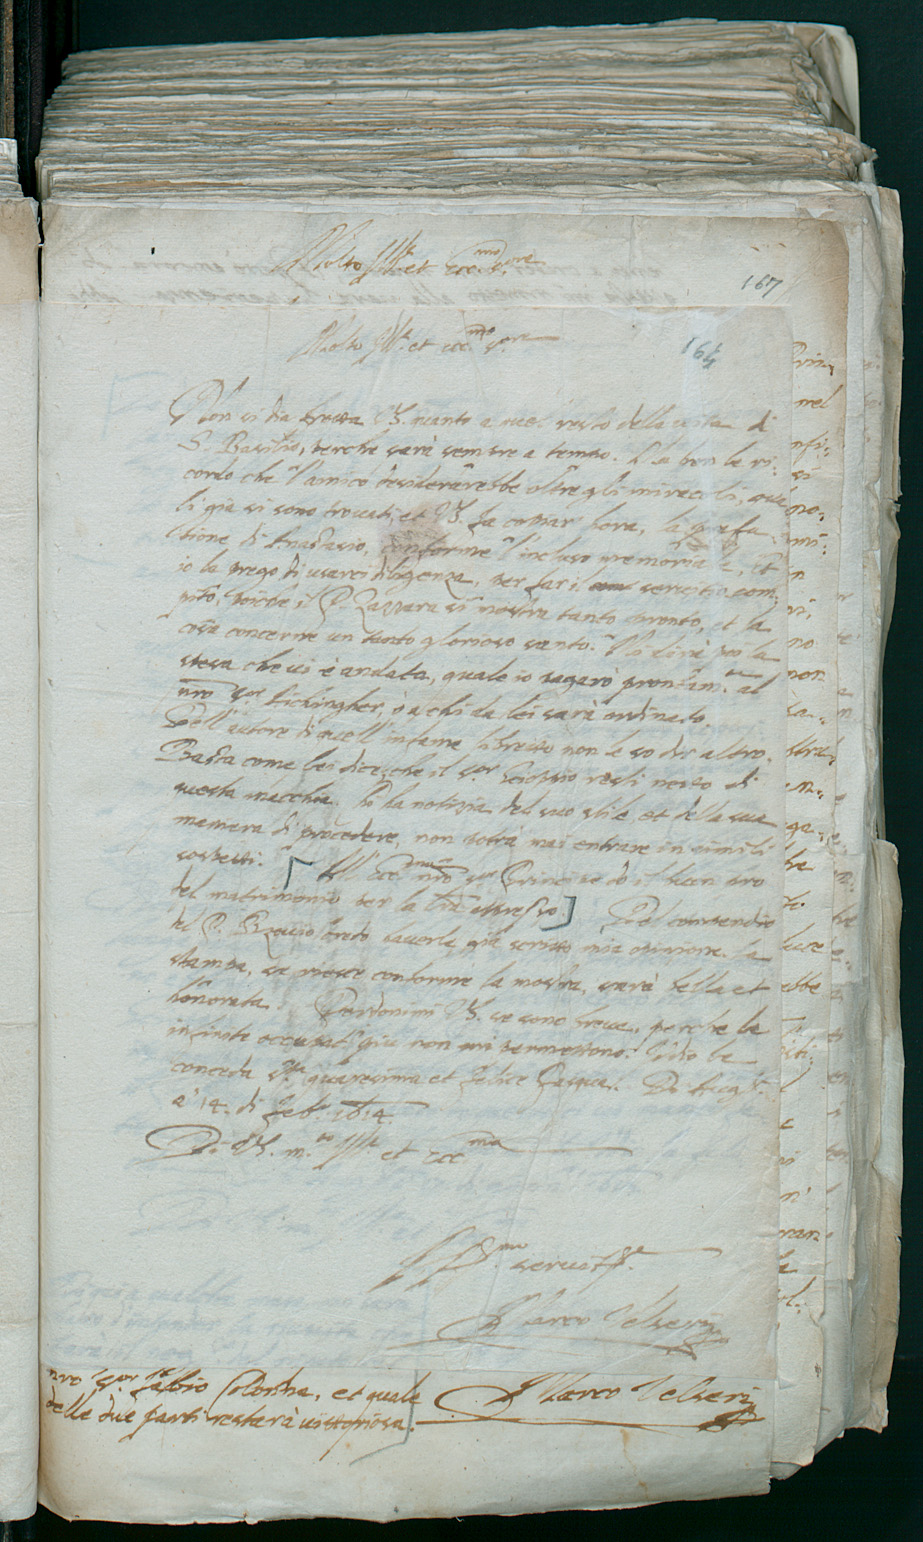 Molto Ill.re et ecc.mo s.ore
167
Molto Ill.re et ecc.mo s.ore
164
Non si dia fretta V.S. quanto a quel resto della vita di
S. Basilio, perche sarà sempre a tempo. Ma ben le ri-
cordo che l'amico desiderarebbe oltre gli miracoli, qua
li già si sono trovati, et V.S. fa copiar hora, la
tione di Anastasio, conforme l'incluso premoria et
io la prego di usarci diligenza, per far il servitio com-
pito, poiche il P. Lazzara si mostra tanto pronto, et la
cosa concerne un tanto glorioso santo. Mi dirà poi la
spesa che vi è andata, quale io pagarò prontam.te al
nro s.or Eichingher, o a chi da lei sarà ordinato.
Dell'autore di quell'infame libretto non le so dir altro.
Basta come lei dice, che il s.or Scioppio resti netto di
questa macchia. Chi ha notizia del suo stile et della sua
maniera di procedere, non potrà mai entrare in simili
sospetti. All' ecc.mo nro s.or Principe do il buon pro
del matrimonio per la mia Del compendio
del P. credo haverla già scritto mia opinione. La
stampa, se riesce conforme la mostra, sarà bella et
honorata. Perdonimi V.S. se sono breve, perche le
infinite occupat.ni più non mi permettono. Iddio le
conceda S.ta quaresima et felice Pasqua. Di Aug.ta
a' 14. di Feb.o 1614.
Di V.S. m.to Ill.re et ecc.ma
Aff.mo servit.re
Marco Velseri
nro s.or Fabio Colonna, et quale
delle due parti restarà vittoriosa.
Marco Velseri